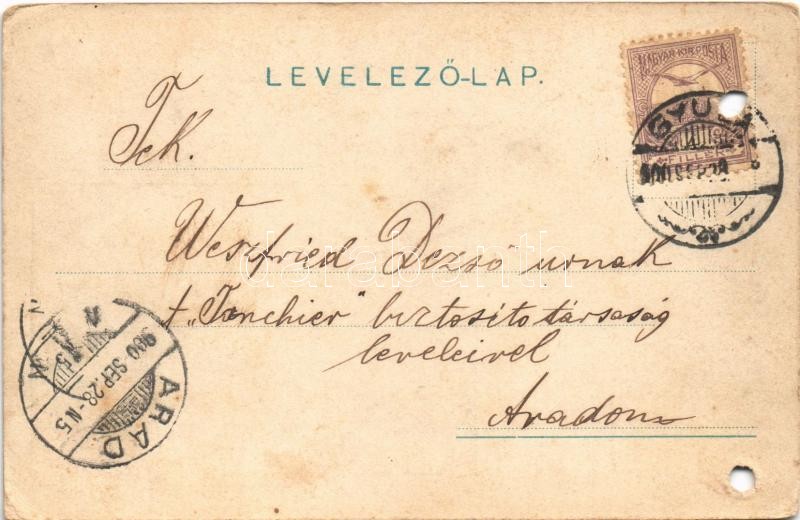 LEVELEZŐ-LAP.
MAGYAR KIR. POSTA
FILLÉR
GYULA
900 SEP. 28
Tek.
Weszfried Dezső urnak
"Fonciere" biztositotársaság
leveleivel
Aradon
ARAD
900 SEP. 28 - N5
darabanth